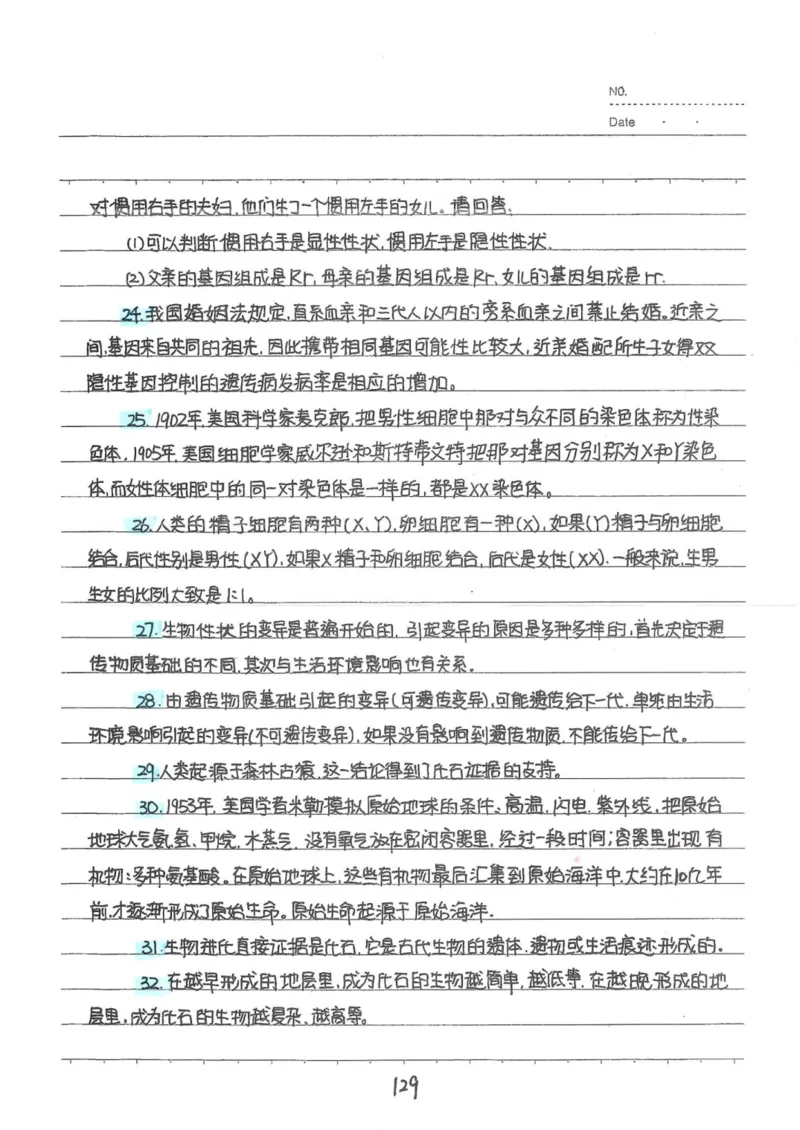 NO.
Date · ·
对惯用右手的夫妇,他们生了一个惯用左手的女儿。请回答:
(1)可以判断惯用右手是显性性状,惯用左手是隐性性状、
(2)父亲的基因组成是Rr,母亲的基因组成是Rr,女儿的基因组成是rr.
24.我国婚姻法规定,直系血亲和三代人以内的旁系血亲之间禁止结婚。近亲之
间,基因来自共同的祖先,因此携带相同基因可能性比较大,近亲婚配所生子女得双
隐性基因控制的遗传病发病率是相应的增加。
25.1902年,美国科学家麦克郎,把男性细胞中那对与众不同的染色体称为性染
色体,1905年,美国细胞学家威尔逊和斯特蒂文特把那对基因分别称为X和Y染色
体,而女性体细胞中的同一对染色体是一样的,都是XX染色体。
26.人类的精子细胞有两种(X、Y),卵细胞有一种(X),如果(Y)精子与卵细胞
结合,后代性别是男性(XY),如果X精子和卵细胞结合,后代是女性(XX).一般来说,生男
生女的比例大致是1:1。
27.生物性状的变异是普遍开始的,引起变异的原因是多种多样的,首先决定于遗
传物质基础的不同,其次与生活环境影响也有关系.
28.由遗传物质基础引起的变异(可遗传变异),可能遗传给下一代,单纯由生活
环境影响引起的变异(不可遗传变异),如果没有影响到遗传物质,不能传给下一代。
29.人类起源于森林古猿,这一结论得到了化石证据的支持。
30.1953年,美国学者米勒模拟原始地球的条件:高温,闪电,紫外线,把原始
地球大气氨,氢、甲烷,水蒸气,没有氧气放在密闭容器里,经过一段时间;容器里出现有
机物:多种氨基酸。在原始地球上,这些有机物最后汇集到原始海洋中,大约在10亿年
前,才逐渐形成了原始生命。原始生命起源于原始海洋.
31.生物进化直接证据是化石,它是古代生物的遗体、遗物或生活痕迹形成的.
32.在越早形成的地层里,成为化石的生物越简单,越低等.在越晚形成的地
层里,成为化石的生物越复杂、越高等。
129